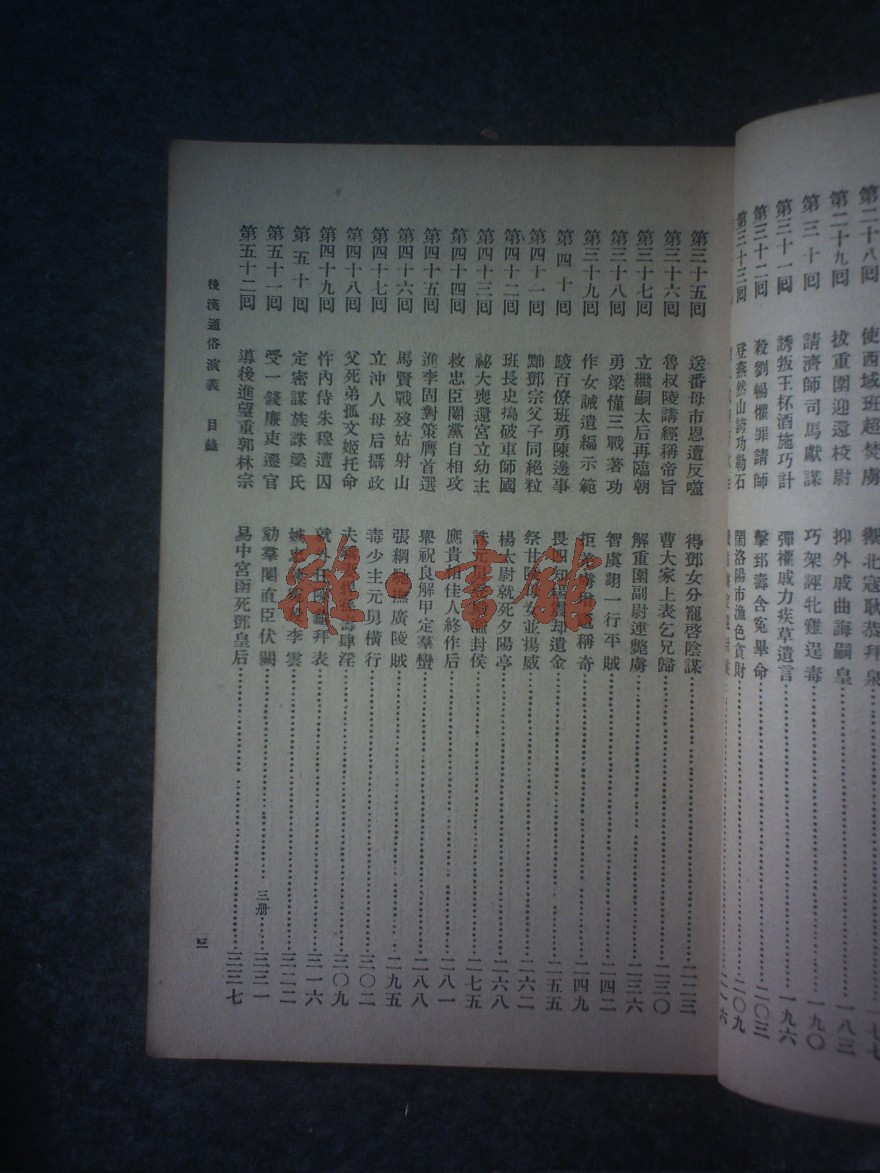 第二十八回 使西域班超焚虜
第二十九回 拔重圍迎還校尉 抑外戚曲誨嗣皇 一八三
第三十回 請濟師司馬獻謀 巧架誣牝雞逞毒 一九〇
第三十一回 誘叛王杯酒施巧計 彈權戚力疾草遺言 一九六
第三十二回 殺劉暢懼罪請師 擊郅壽含冤畢命 二〇三
第三十三回 登燕然山誇功勒石 鬧洛陽市漁色貪財 二〇九
第三十五回 送番母市恩遭反噬 得鄧女分寵啓陰謀 二二三
第三十六回 魯叔陵講經稱帝旨 曹大家上表乞兄歸 二三〇
第三十七回 立繼嗣太后再臨朝 解重圍副尉連斃虜 二三六
第三十八回 勇梁慬三戰著功 智虞詡一行平賊 二四二
第三十九回 作女誡遺編示範 拒 稱奇 二四九
第四十回 駁百僚班勇陳邊事 畏四知楊震却遺金 二五五
第四十一回 黜鄧宗父子同絕粒 祭甘陵母女並揚威 二六二
第四十二回 班長史搗破車師國 楊太尉就死夕陽亭 二六八
第四十三回 祕大喪還宮立幼主 誅元 封侯 二七五
第四十四回 救忠臣閹黨自相攻 應貴相佳人終作后 二八一
第四十五回 進李固對策膺首選 舉祝良解甲定羣蠻 二八八
第四十六回 馬賢戰歿姑射山 張綱馳撫廣陵賊 二九五
第四十七回 立沖人母后攝政 毒少主元舅橫行 三〇二
第四十八回 父死弟孤文姬托命 夫 肆淫 三〇九
第四十九回 忤內侍朱穆遭囚 就外任 拜表 三一六
第五十回 定密謀族誅梁氏 李雲 三二二
第五十一回 受一錢廉吏遷官 劾羣閹直臣伏闕 三冊 三三一
第五十二回 導後進望重郭林宗 易中宮幽死鄧皇后 三三七
後漢通俗演義 目錄